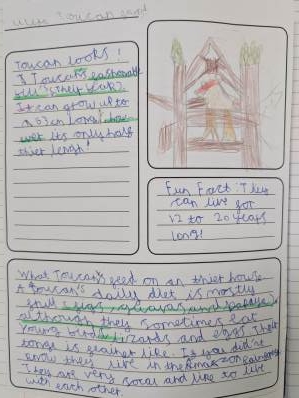 Toucan looks!
A Toucans
bill
It can grow up to
63cm long!
its only half
thier lengh!
Fun Fact: They
can live for
12 to 20 years
long!
What Toucan's feed on an thier house
A toucan's daily diet is mostly
and
although they sometimes eat
young birds, lizards and eggs. Their
tonge is feather like. If you didn't
know they live in the Amazon
They are very socal and like to live
with each other.